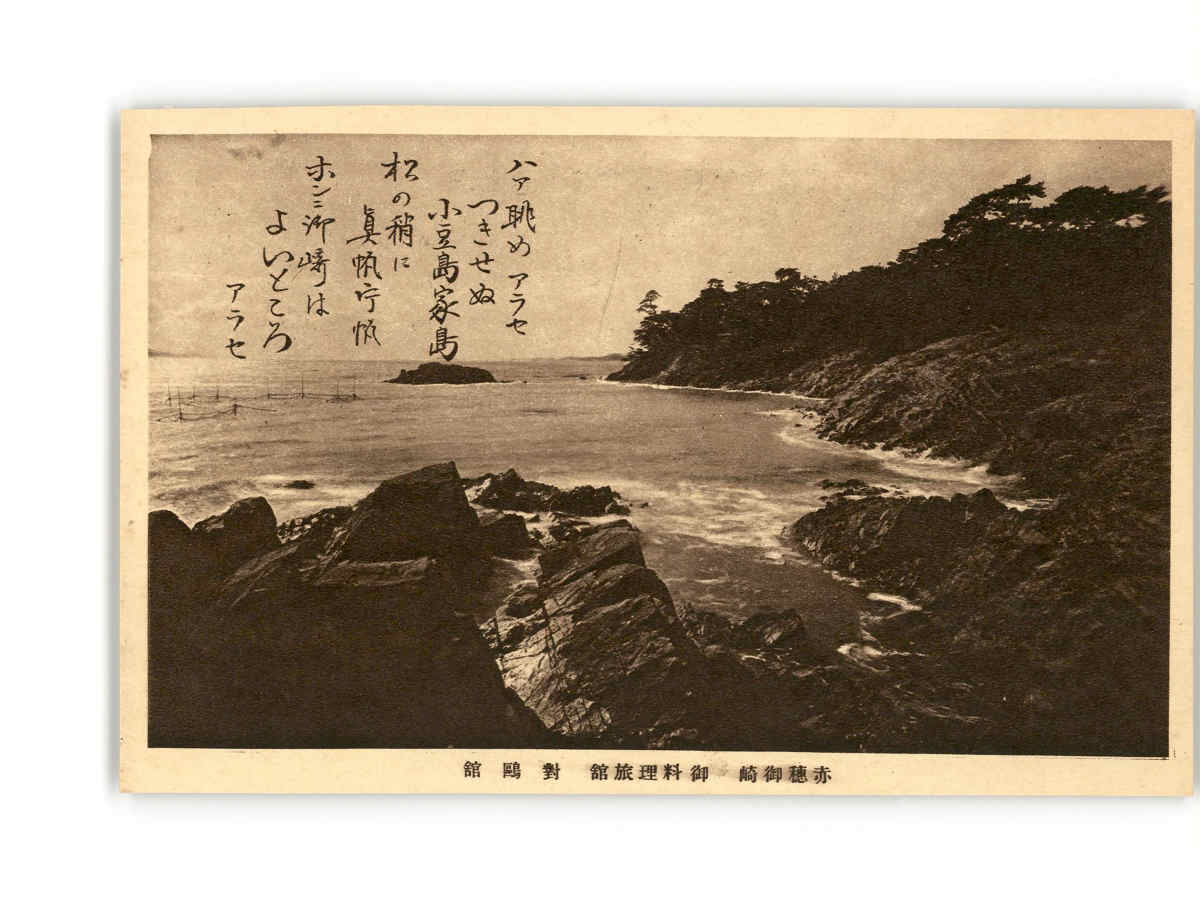 ハァ眺め アラセ
つきせぬ
小豆島家島
松の梢に
眞帆片帆
ホンニ御崎は
よいところ
アラセ
赤穗御崎 御料理旅舘 對鷗舘